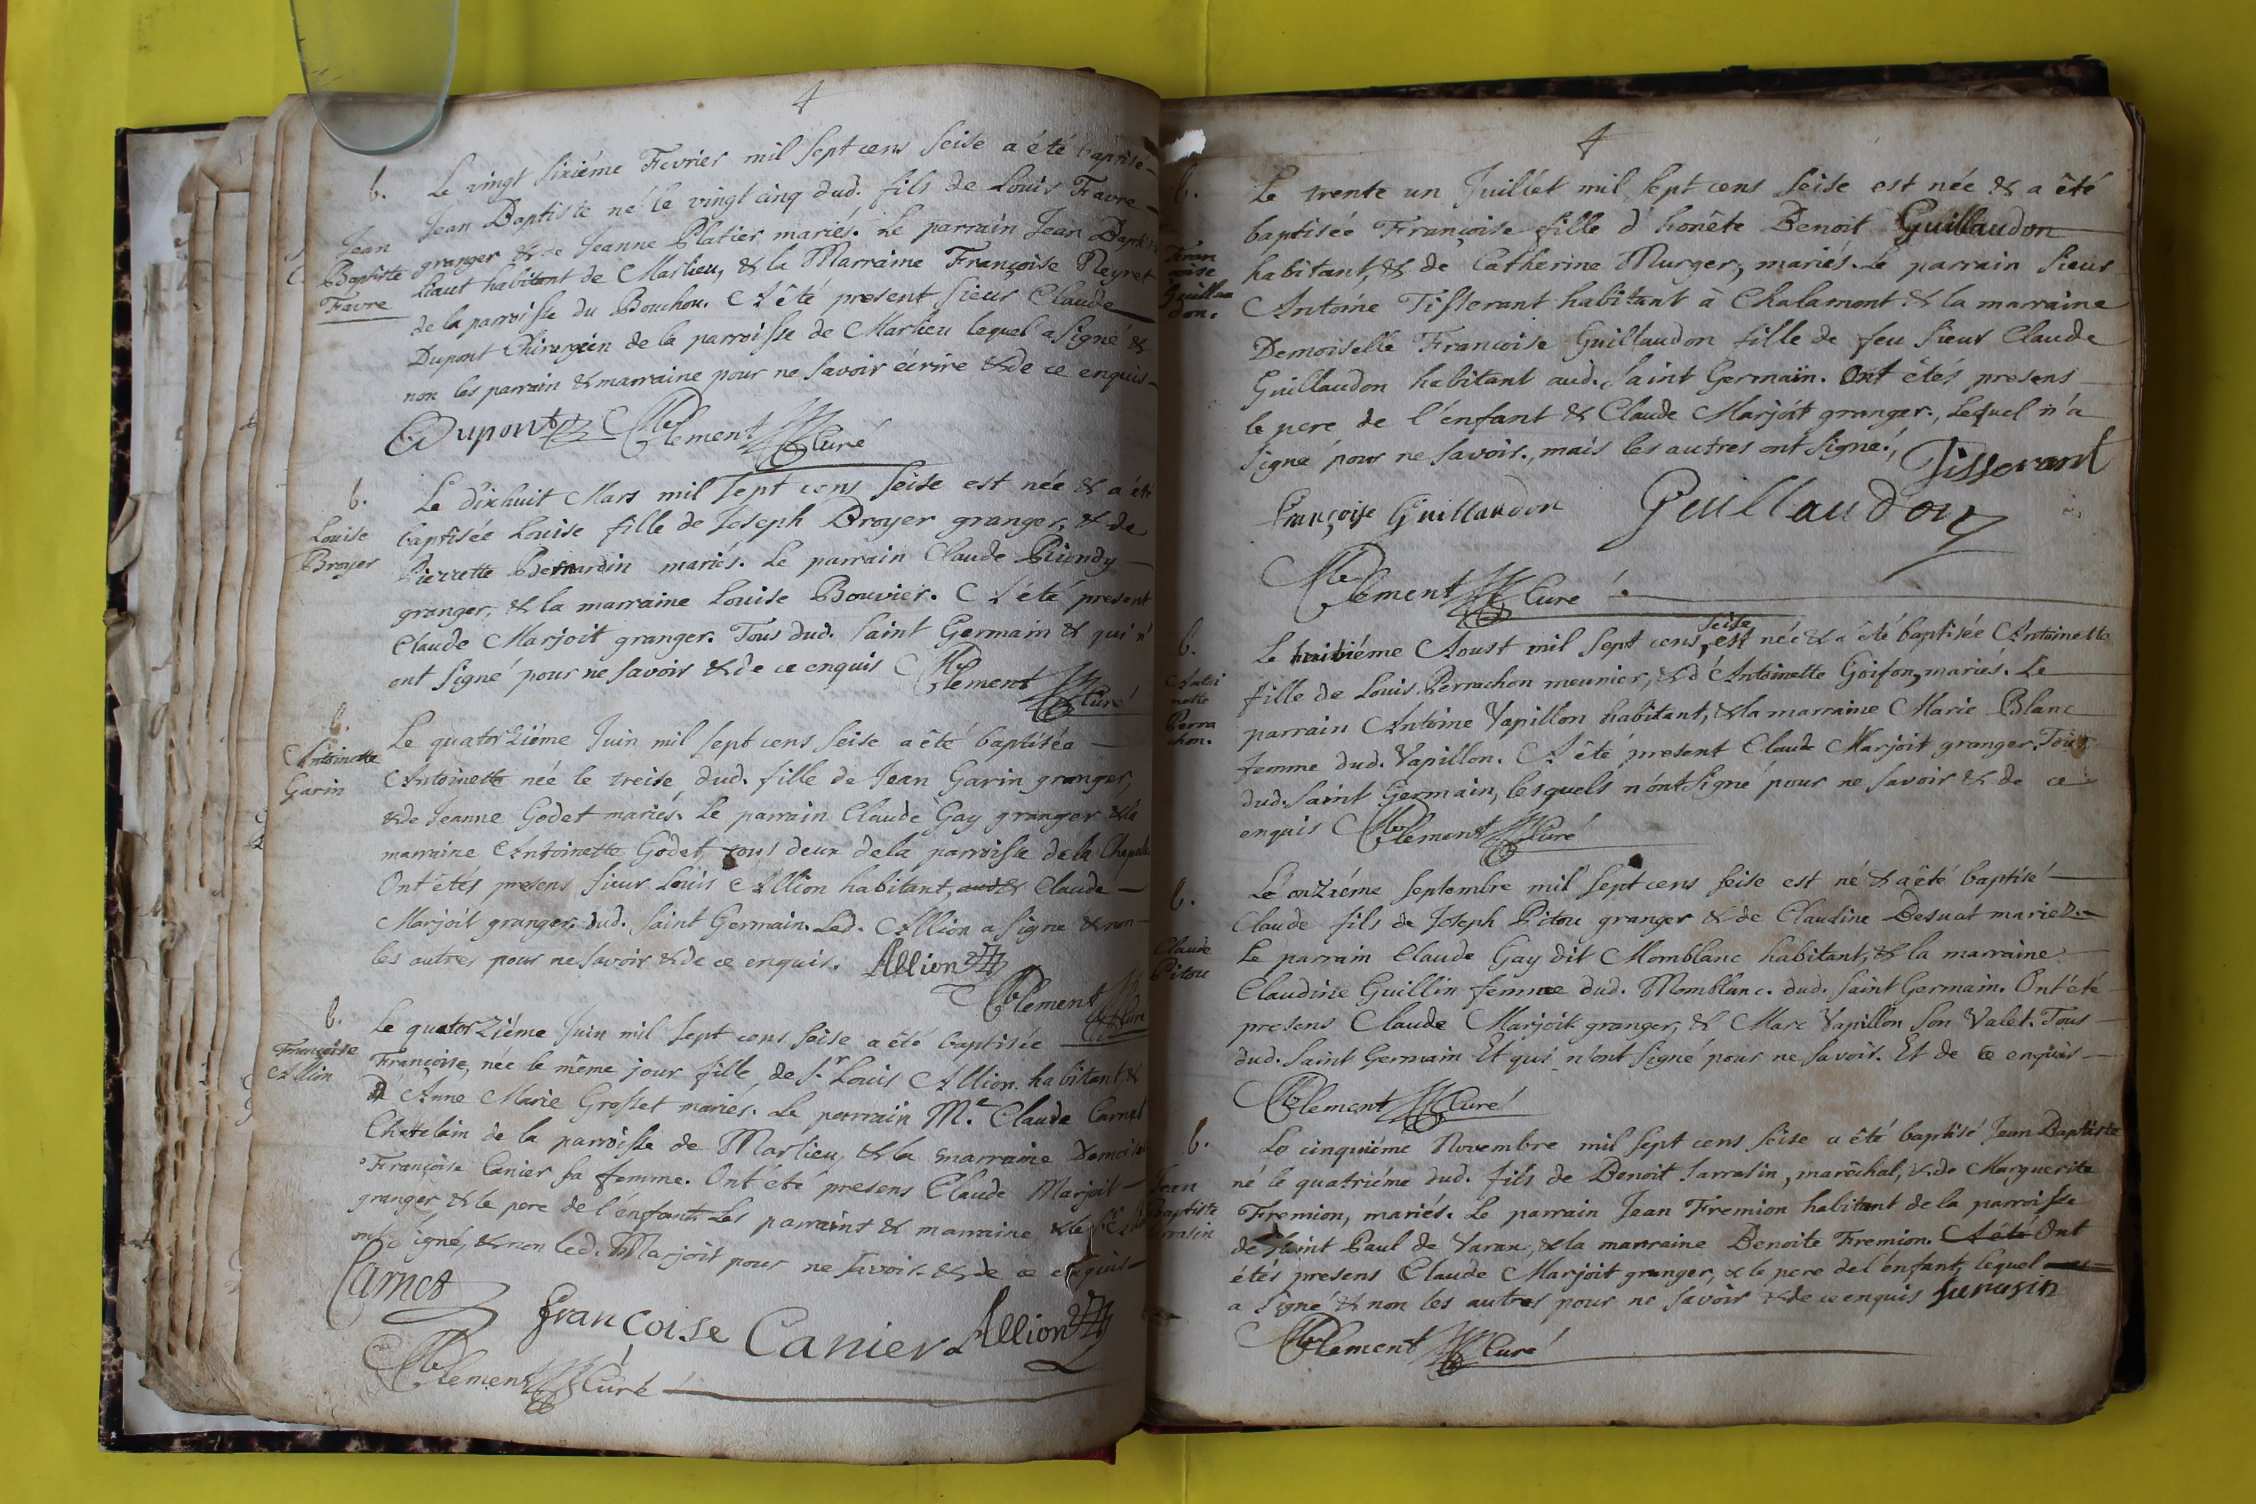 4
b. Le vingt sixiéme Fevrier mil sept cens seise a été baptisé
Jean Baptiste né le vingt cinq dud. fils de Louis Favre
Jean
Baptiste
Favre
granger & de Jeanne Platier mariés. Le parrain Jean Baptiste
habitant de Marlieu, & la Marraine Françoise Neyret
de la parroisse du Bouchou. A été present sieur Claude
Dupont Chirurgien de la parroisse de Marlieu lequel a signé &
non les parrain & marraine pour ne savoir écrire & de ce enquis
Dupont Clement Curé
b. Le dixhuit Mars mil sept cens seise est née & a été
Louise
Broyer
baptisée Louise fille de Joseph Broyer granger, & de
Pierrette Bernardin mariés. Le parrain Claude Piondy
granger, & la marraine Louise Bouvier. A été present
Claude Marjoit granger. Tous dud. Saint Germain & qui n'
ont signé pour ne savoir & de ce enquis Clement Curé
b. Le quatorziéme Juin mil sept cens seise a été baptisée
Antoinette
Garin
Antoinette née le treise dud. fille de Jean Garin granger,
& de Jeanne Godet mariés. Le parrain Claude Gay granger & la
marraine Antoinette Godet tous deux de la parroisse de la Chapelle
Ont étés presens sieur Louis Allion habitant, & Claude
Marjoit granger. dud. Saint Germain. Led. Allion a signé & non
les autres pour ne savoir & de ce enquis. Allion
Clement Curé
b. Le quatorziéme Juin mil sept cens seise a été baptisée
Françoise
Allion
Françoise, née le même jour fille de Sr. Louis Allion habitant &
d'Anne Marie Grosset mariés. Le parrain Me. Claude Carnet
Chatelain de la parroisse de Marlieu & la marraine Demoiselle
Françoise Canier sa femme. Ont été presens Claude Marjoit
granger & le pere de l'enfant. Les parraint & marraine & le
ont signé, & non led. Marjoit pour ne savoir & de ce enquis
Carnet Françoise Canier Allion
Clement Curé
4
b. Le trente un Juillet mil sept cens seise est née & a êté
baptisée Françoise fille d'honête Benoit Guillaudon
Fran
çoise
Guillau
don.
habitant, & de Catherine Murger, mariés. Le parrain sieur
Antoine Tisserant habitant à Chalamont & la marraine
Demoiselle Francoise Guillaudon fille de feu sieur Claude
Guillaudon habitant aud. Saint Germain. Ont êtés presens
le pere de l'énfant & Claude Marjoit granger., Lequel n'a
signé pour ne savoir., mais les autres ont signé., Tisserant
françoise Guillaudon Guillaudon
Clement Curé
b. Le huitiéme Aoust mil sept cens seise est née & a été baptisée Antoinette
Antoi
nette
Perra
chon.
fille de Louis Perrachon meunier, & d'Antoinette Goifon, mariés. Le
parrain Antoine Vapillon habitant, & la marraine Marie Blanc
femme dud. Vapillon. A été present Claude Marjoit granger. Tous
dud. Saint Germain, lesquels n'ont signé pour ne savoir & de ce
enquis Clement Curé
b. Le onziéme septembre mil sept cens seise est né & a êté baptisé
Claude
Pitou
Claude fils de Joseph Pitou granger & de Claudine Desuat mariez.
Le parrain Claude Gay dit Momblanc habitant, & la marraine
Claudine Guillin femme dud. Momblanc. dud. Saint Germain. Ont été
presens Claude Marjoit granger, & Marc Vapillon son Valet. Tous
dud. Saint Germain Et qui n'ont signé pour ne savoir. Et de ce enquis
Clement Curé
b. Le cinquiéme Novembre mil sept cens seise a êté baptisé Jean Baptiste
Jean
Baptiste
Sarrasin
né le quatriéme dud. fils de Benoit Sarrasin, maréchal, & de Marguerite
Fremion, mariés. Le parrain Jean Fremion habitant de la parroisse
de Saint Paul de Varax, & la marraine Benoite Fremion. A été Ont
étés presens Claude Marjoit granger, & le pere de l'énfant, lequel
a signé & non les autres pour ne savoir & de ce enquis Sarrasin
Clement Curé